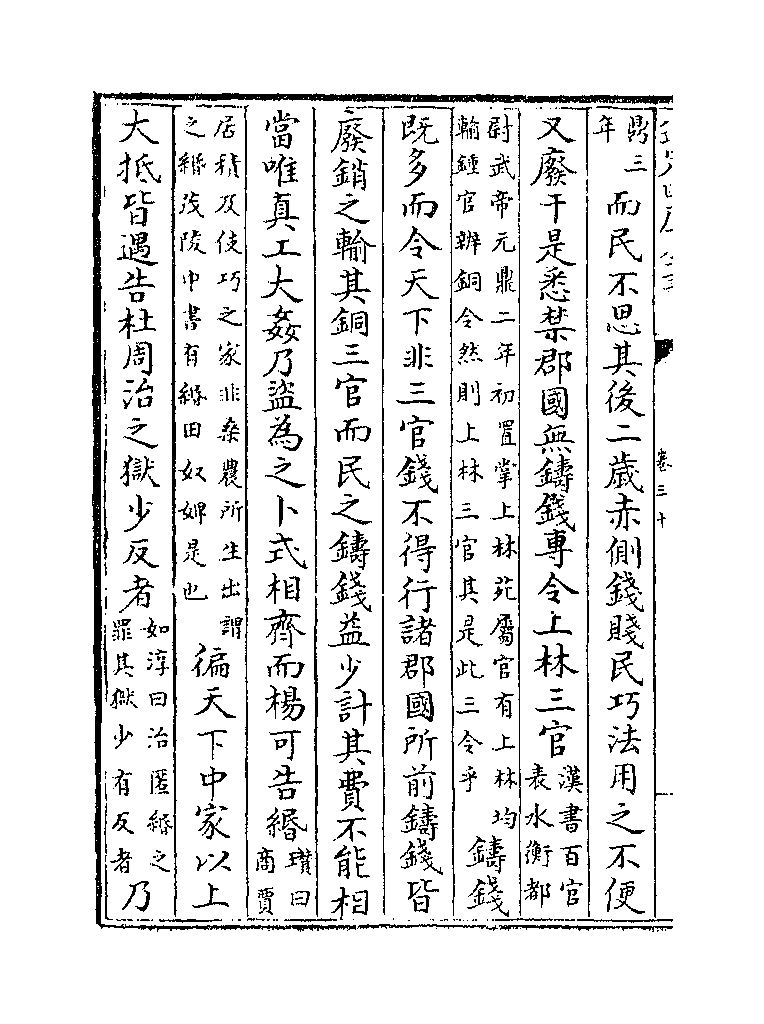 卷三十
鼎三
年
而民不思其後二歲赤側錢賤民巧法用之不便
又廢于是悉禁郡國無鑄錢專令上林三官
漢書百官
表水衡都
尉武帝元鼎二年初置掌上林苑屬官有上林均
輸鍾官辨銅令然則上林三官其是此三令乎
鑄錢
既多而令天下非三官錢不得行諸郡國所前鑄錢皆
廢銷之輸其銅三官而民之鑄錢益少計其費不能相
當唯真工大姦乃盜為之卜式相齊而楊可告緡
瓚曰
商賈
居積及伎巧之家非桑農所生出謂
之緡茂陵中書有緡田奴婢是也
徧天下中家以上
大抵皆遇告杜周治之獄少反者
如淳曰治匿緡之
罪其獄少有反者
乃